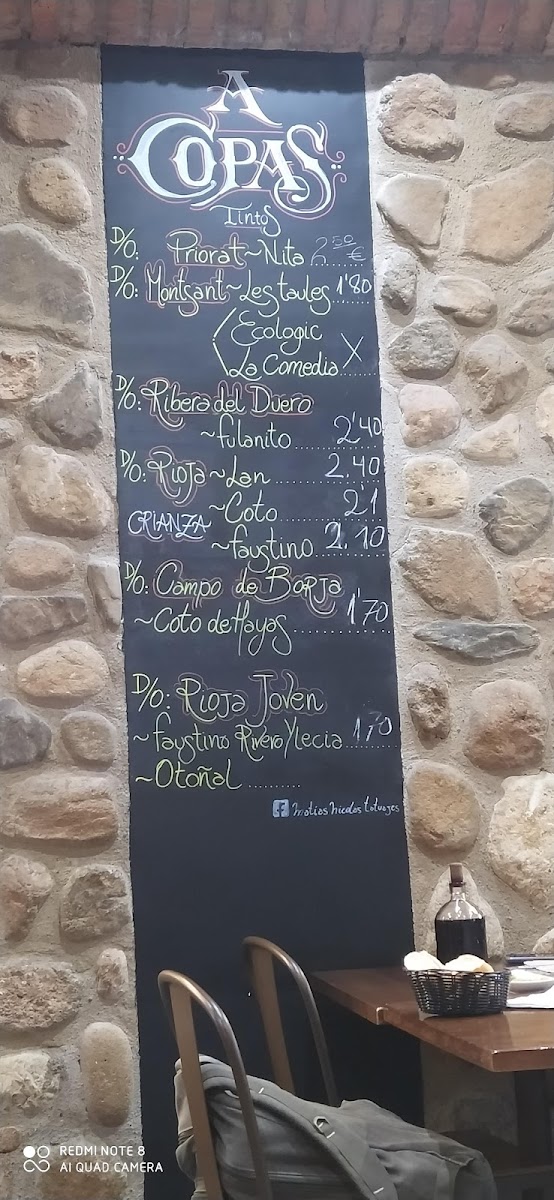 A
COPAS
Tintos
D/O: Priorat ~ Nita 2'50 €
D/O: Montsant ~ Les taules 1'80
Ecologic
La Comedia X
D/O: Ribera del Duero
~ fulanito .... 2'40
D/O: Rioja ~ Lan .... 2.40
~ Coto .... 2'1
CRIANZA
~ faustino .. 2.10
D/O: Campo de Borja
~ Coto de Hayas 1'70
D/O: Rioja Joven
~ faustino Rivero Ylecia 1'70
~ Otoñal .......
f matias nicolas tatuajes
REDMI NOTE 8
AI QUAD CAMERA